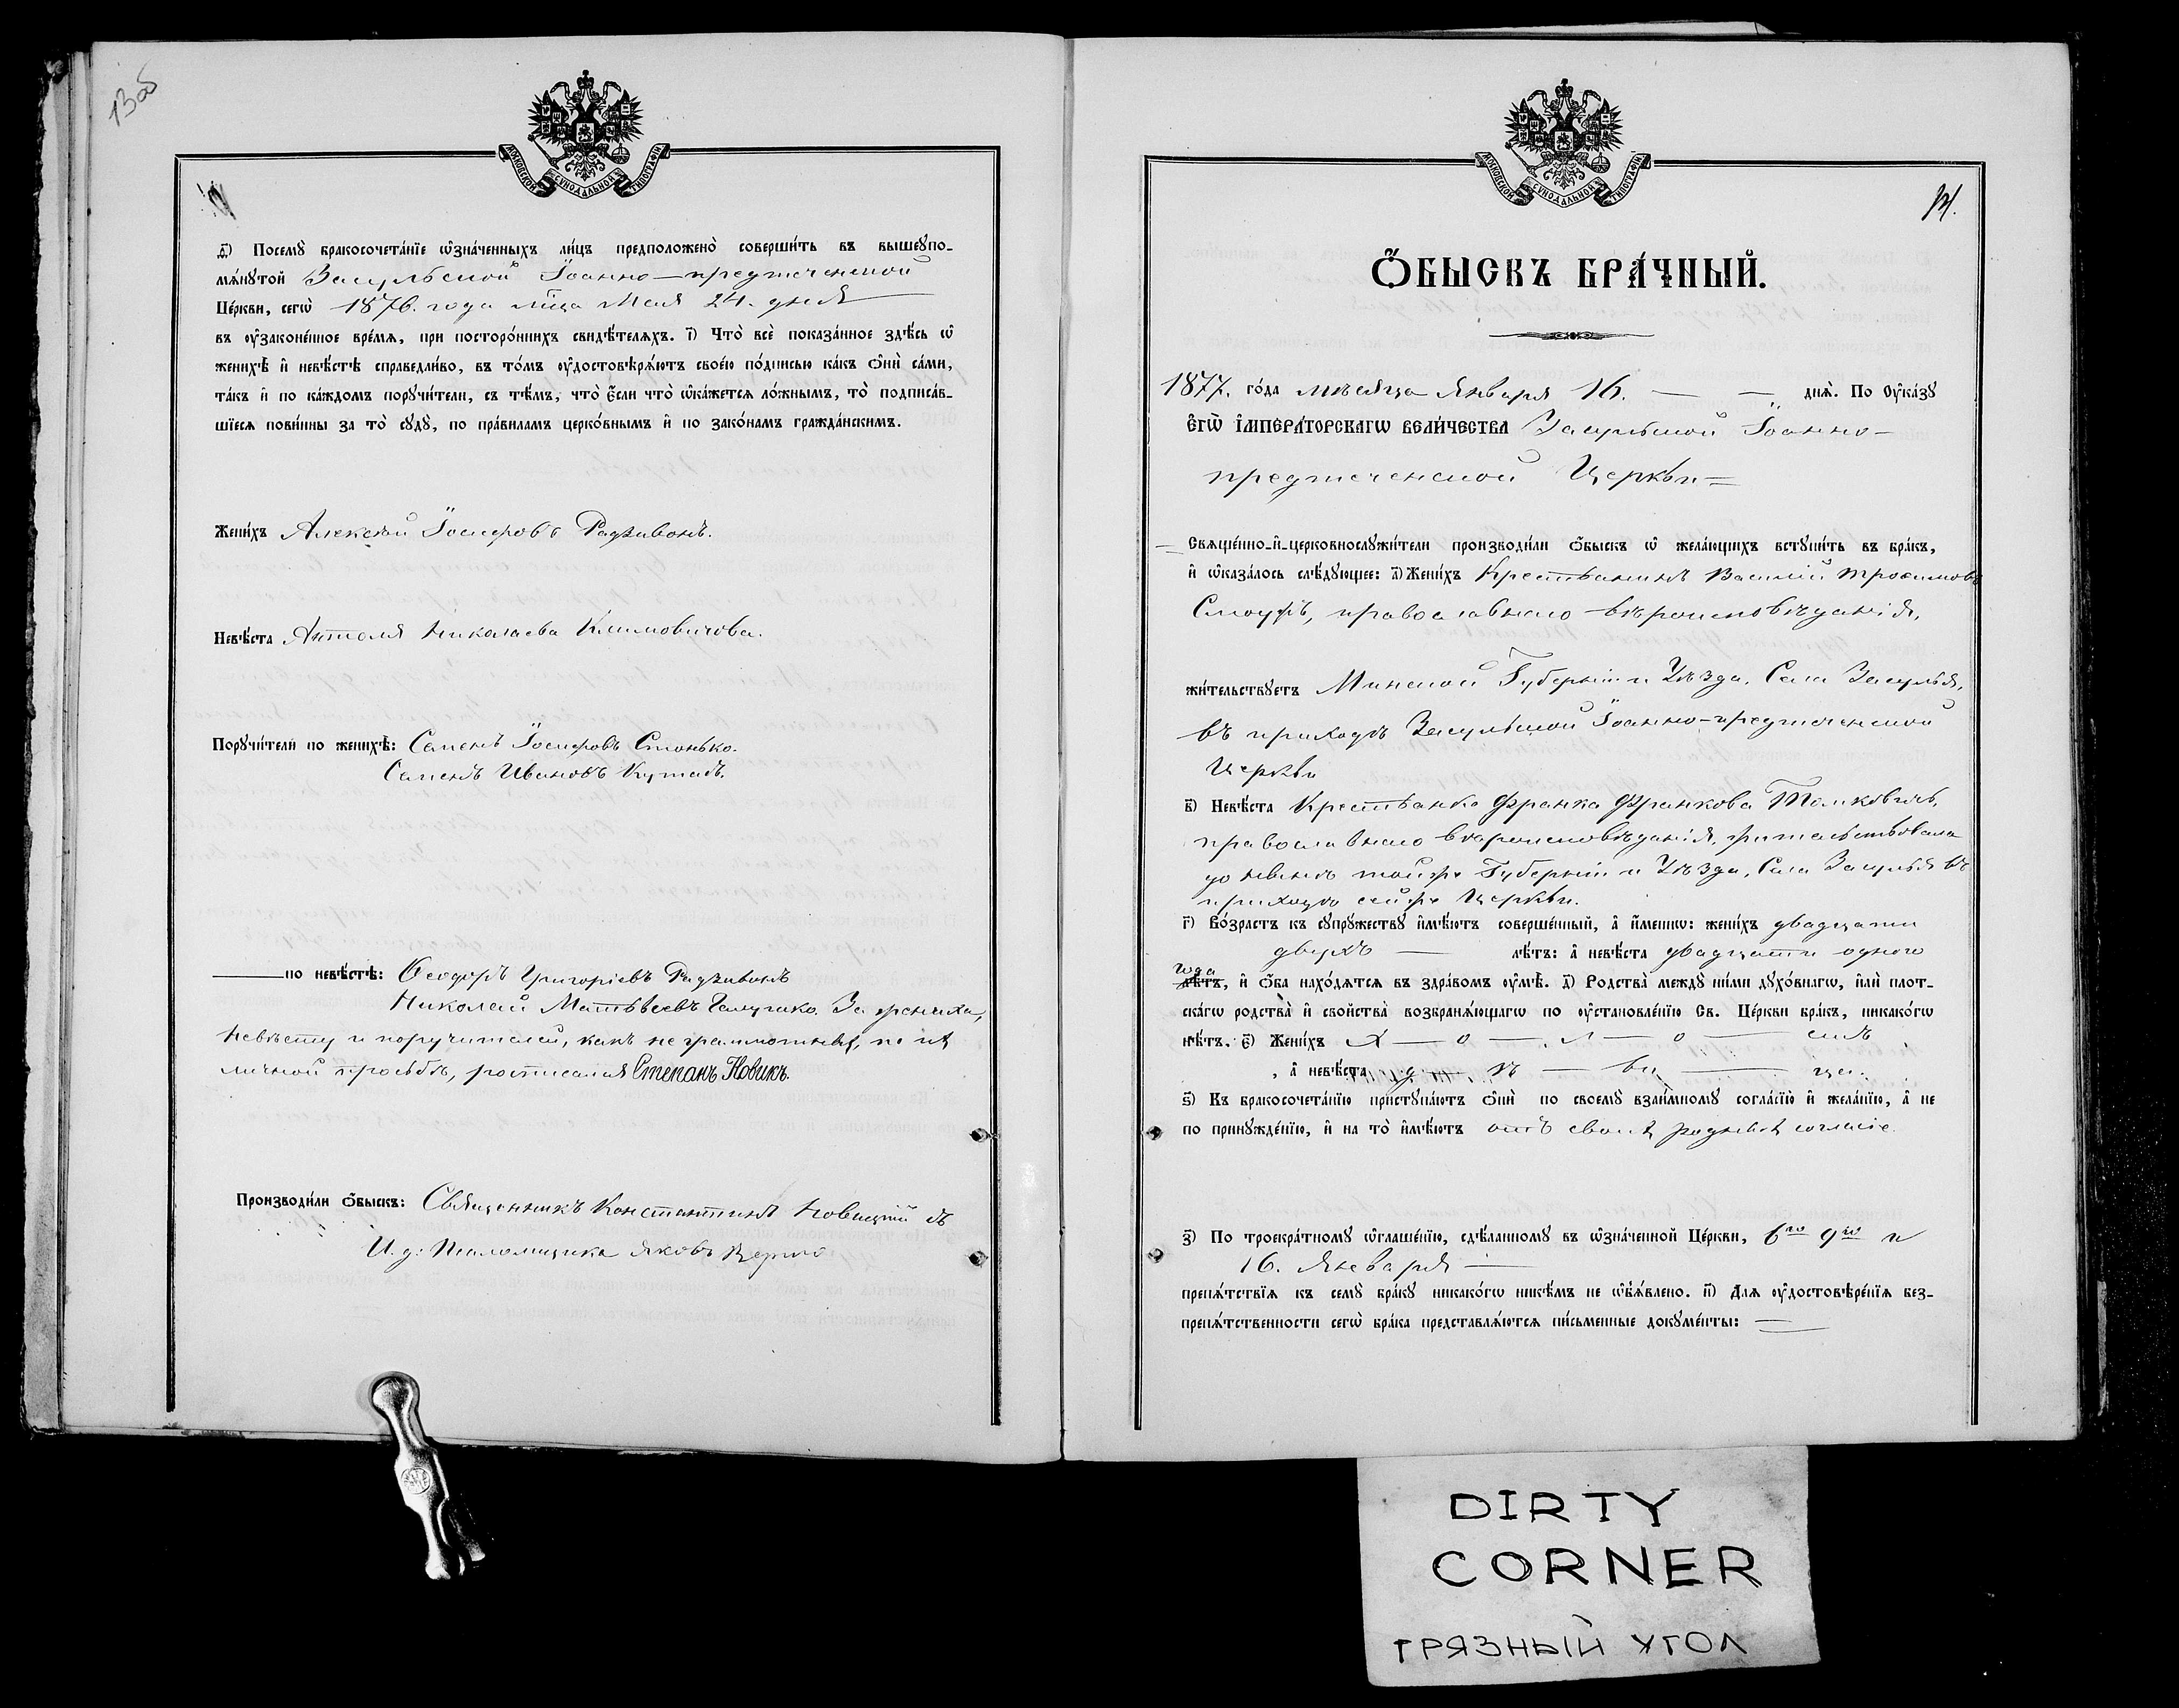 13об
МОСКОВСКОЙ СѴНОДАЛЬНОЙ ТИПОГРАФІИ
д҃і) Посемꙋ̀ бракосочета́нїе ѡ҆зна́ченныхъ ли́цъ предположено̀ соверши́ть въ вышеꙋпо-
мѧ́нꙋтой Засульской Іоанно-предтеченской
Це́ркви, сегѡ̀ 1876. года мѣсца Мая 24. дня
въ ᲂу҆законе́нное вре́мѧ, при посторо́ннихъ свидѣ́телѧхъ. і҃) Что̀ всѐ показа́нное здѣ́сь ѡ҆
женихѣ̀ и҆ невѣ́стѣ справедли́во, въ то́мъ ᲂу҆достовѣрѧ́ютъ свое́ю по́дписью ка́къ ѻ҆нѝ са́ми,
та́къ и҆ по ка́ждомъ порꙋчи́тели, съ тѣ́мъ, что̀ є҆́сли что̀ ѡ҆ка́жетсѧ ло́жнымъ, то̀ подписа́в-
шїесѧ пови́нны за то̀ сꙋдꙋ̀, по пра́виламъ церко́внымъ и҆ по зако́намъ гражда́нскимъ.
Жени́хъ Алексѣй Іосифовъ Радзивонъ.
Невѣ́ста Антоля Николаева Климовичова.
Порꙋчи́тели по женихѣ̀: Семенъ Іосифовъ Стонько.
Семенъ Ивановъ
по невѣ́стѣ: Ѳеодоръ Григоріевъ Радзивонъ
Николай Матвѣевъ За жениха,
невѣсту и поручителей, какъ неграмотныхъ, по ихъ
личной просьбѣ, росписался Степанъ Новикъ.
Производи́ли ѻ҆́быскъ: Священникъ Константинъ Новицкій
И. д. Псаломщика Яковъ
МОСКОВСКОЙ СѴНОДАЛЬНОЙ ТИПОГРАФІИ
14.
Ѻ҆́БЫСКЪ БРА́ЧНЫЙ.
1877. го́да мѣсяца Января 16. — — днѧ̀. По Оу҆ка́зꙋ
Є҆ГѠ̀ І҆МПЕРА́ТОРСКАГѠ ВЕЛИ́ЧЕСТВА Засульской Іоанно-
предтеченской Церкви
Свѧще́нно-и҆-церковнослꙋжи́тели производи́ли ѻ҆́быскъ ѡ҆ жела́ющихъ встꙋпи́ть въ бра́къ,
и҆ ѡ҆каза́лось слѣ́дꙋющее: а҃) Жени́хъ Крестьянинъ Василій Трофимовъ
православнаго вѣроисповѣданія,
жи́тельствꙋетъ Минской Губерніи и Уѣзда, Села Засулья,
въ приходѣ Засульской Іоанно-предтеченской
Церкви
в҃) Невѣ́ста Крестьянка Франка Франкова Томковичъ,
православнаго вѣроисповѣданія, жительствовала
до нынѣ той же Губерніи и Уѣзда, Села Засулья въ
приходѣ сей же Церкви.
г҃) Во́зрастъ къ сꙋпрꙋ́жествꙋ и҆мѣ́ютъ соверше́нный, а҆ и҆́менно: жени́хъ двадцати
двухъ — лѣ́тъ: а҆ невѣ́ста двадцати одного
года
лѣ́тъ, и҆ ѻ҆́ба нахо́дѧтсѧ въ здра́вомъ ᲂу҆мѣ̀. д҃) Родства̀ междꙋ̀ ни́ми дꙋхо́внагѡ, и҆лѝ плот-
ска́гѡ родства̀ и҆ сво́йства возбранѧ́ющагѡ по ᲂу҆становле́нїю Св. Це́ркви бра́къ, никако́гѡ
нѣ́тъ. є҃) Жени́хъ х — о — л — о — стъ
, а҆ невѣ́ста д — ѣ — ви — ца.
ѕ҃) Къ бракосочета́нїю пристꙋпа́ютъ ѻ҆нѝ по своемꙋ̀ взаи́мномꙋ согла́сїю и҆ жела́нїю, а҆ не
по принꙋжде́нїю, и҆ на то̀ и҆мѣ́ютъ отъ своихъ родныхъ согласіе.
з҃) По троекра́тномꙋ ѡ҆глаше́нїю, сдѣ́ланномꙋ въ ѡ҆зна́ченной Це́ркви, 6го 9го и
16. Января —
препѧ́тствїѧ къ семꙋ̀ бра́кꙋ никако́гѡ никѣ́мъ не ѡ҆б̾ѧ́влено. и҃) Длѧ ᲂу҆достовѣре́нїѧ без-
препѧ́тственности сегѡ̀ бра́ка представлѧ́ютсѧ пи́сьменные докꙋме́нты: —
DIRTY
CORNER
ГРЯЗНЫЙ УГОЛ